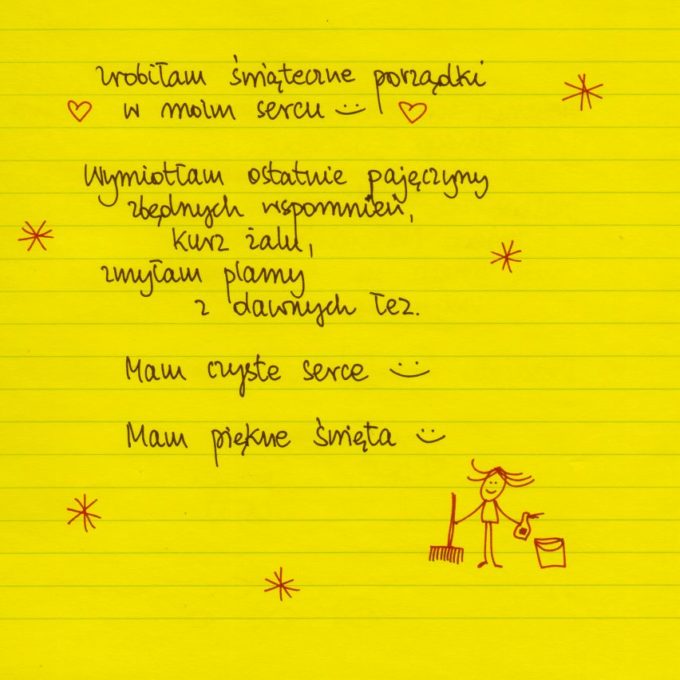 zrobiłam świąteczne porządki
w moim sercu :)
Wymiotłam ostatnie pajęczyny
zbędnych wspomnień,
kurz żalu,
zmyłam plamy
z dawnych łez.
Mam czyste serce :)
Mam piękne święta :)